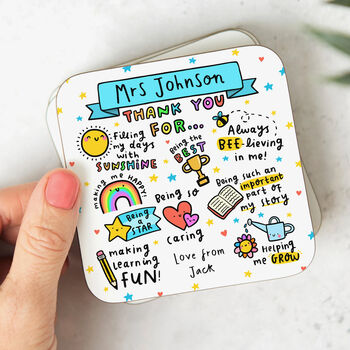 Mrs Johnson
THANK YOU
FOR...
Filling
my days
with
SUNSHINE
Being the
BEST
Always
BEE-lieving
in me!
making me HAPPY!
Being so
caring
Being such an
important
part of
my story
Being
a STAR
making
learning
FUN!
Love from
Jack
Helping
me GROW